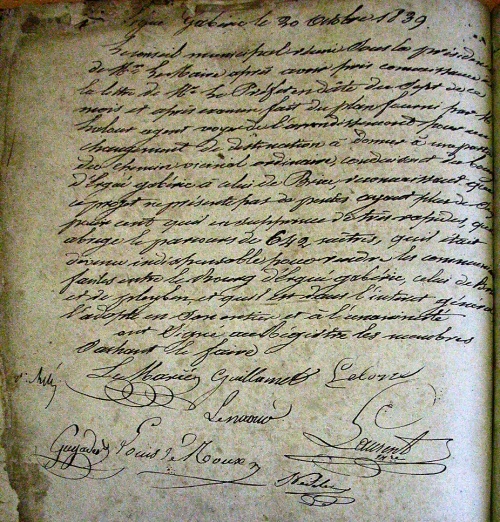 Ergué gabéric le 20 Octobre 1839.
Le conseil municipal réuni sous la présidence
de Mr. Le Maire après avoir pris connaissance de
la lettre de Mr. Le Préfet en date du Sept de ce
mois et après examen fait du plan fourni par Mr
agent voyer de l'arrondissement pour un
changement de à donner à une partie
du chemin vicinal ordinaire, conduisant du bourg
d'Ergué gabéric à celui de Briec, reconnaissant que
ce projet ne présente pas de pentes ayant plus de
pour cent, qu'il en supprime de très rapides, qu'il
abrège le parcours de 642 mètres, qu'il était
devenu indispensable pour rendre les communications
faciles entre le Bourg d'Ergué gabéric, celui de Briec
et de pleyben et qu'il est dans l'intérêt général
l'adopte en son entier et à l'unanimité
ont Signé au Registre les membres
Sachant le faire
Le Marié Guillamet
Lenaour
Laurent
Guyader Louis Le Moux